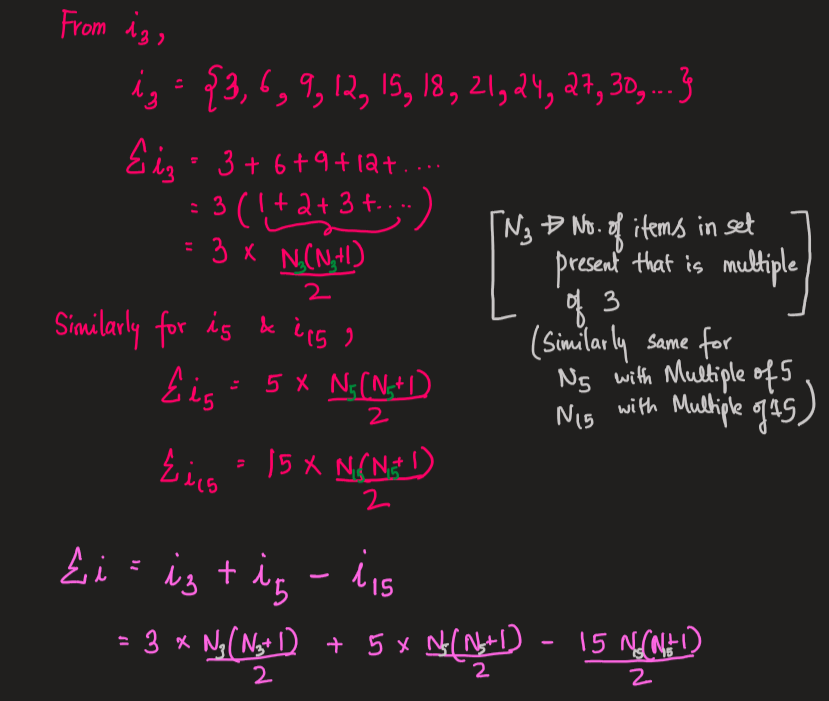 From i₃,
i₃ = {3, 6, 9, 12, 15, 18, 21, 24, 27, 30, ...}
Σi₃ = 3 + 6 + 9 + 12 + ....
= 3 (1 + 2 + 3 + ....)
= 3 × N₃(N₃+1)/2
[N₃ → No. of items in set
present that is multiple
of 3]
Similarly for i₅ & i₁₅,
(Similarly same for
N₅ with Multiple of 5
N₁₅ with Multiple of 15)
Σi₅ = 5 × N₅(N₅+1)/2
Σi₁₅ = 15 × N₁₅(N₁₅+1)/2
Σi = i₃ + i₅ - i₁₅
= 3 × N₃(N₃+1)/2 + 5 × N₅(N₅+1)/2 - 15 N₁₅(N₁₅+1)/2